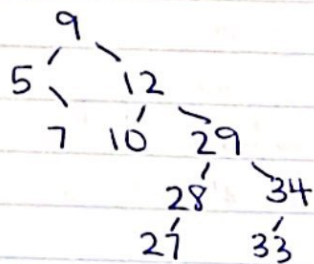 9
5 12
7 10 29
28 34
27 33